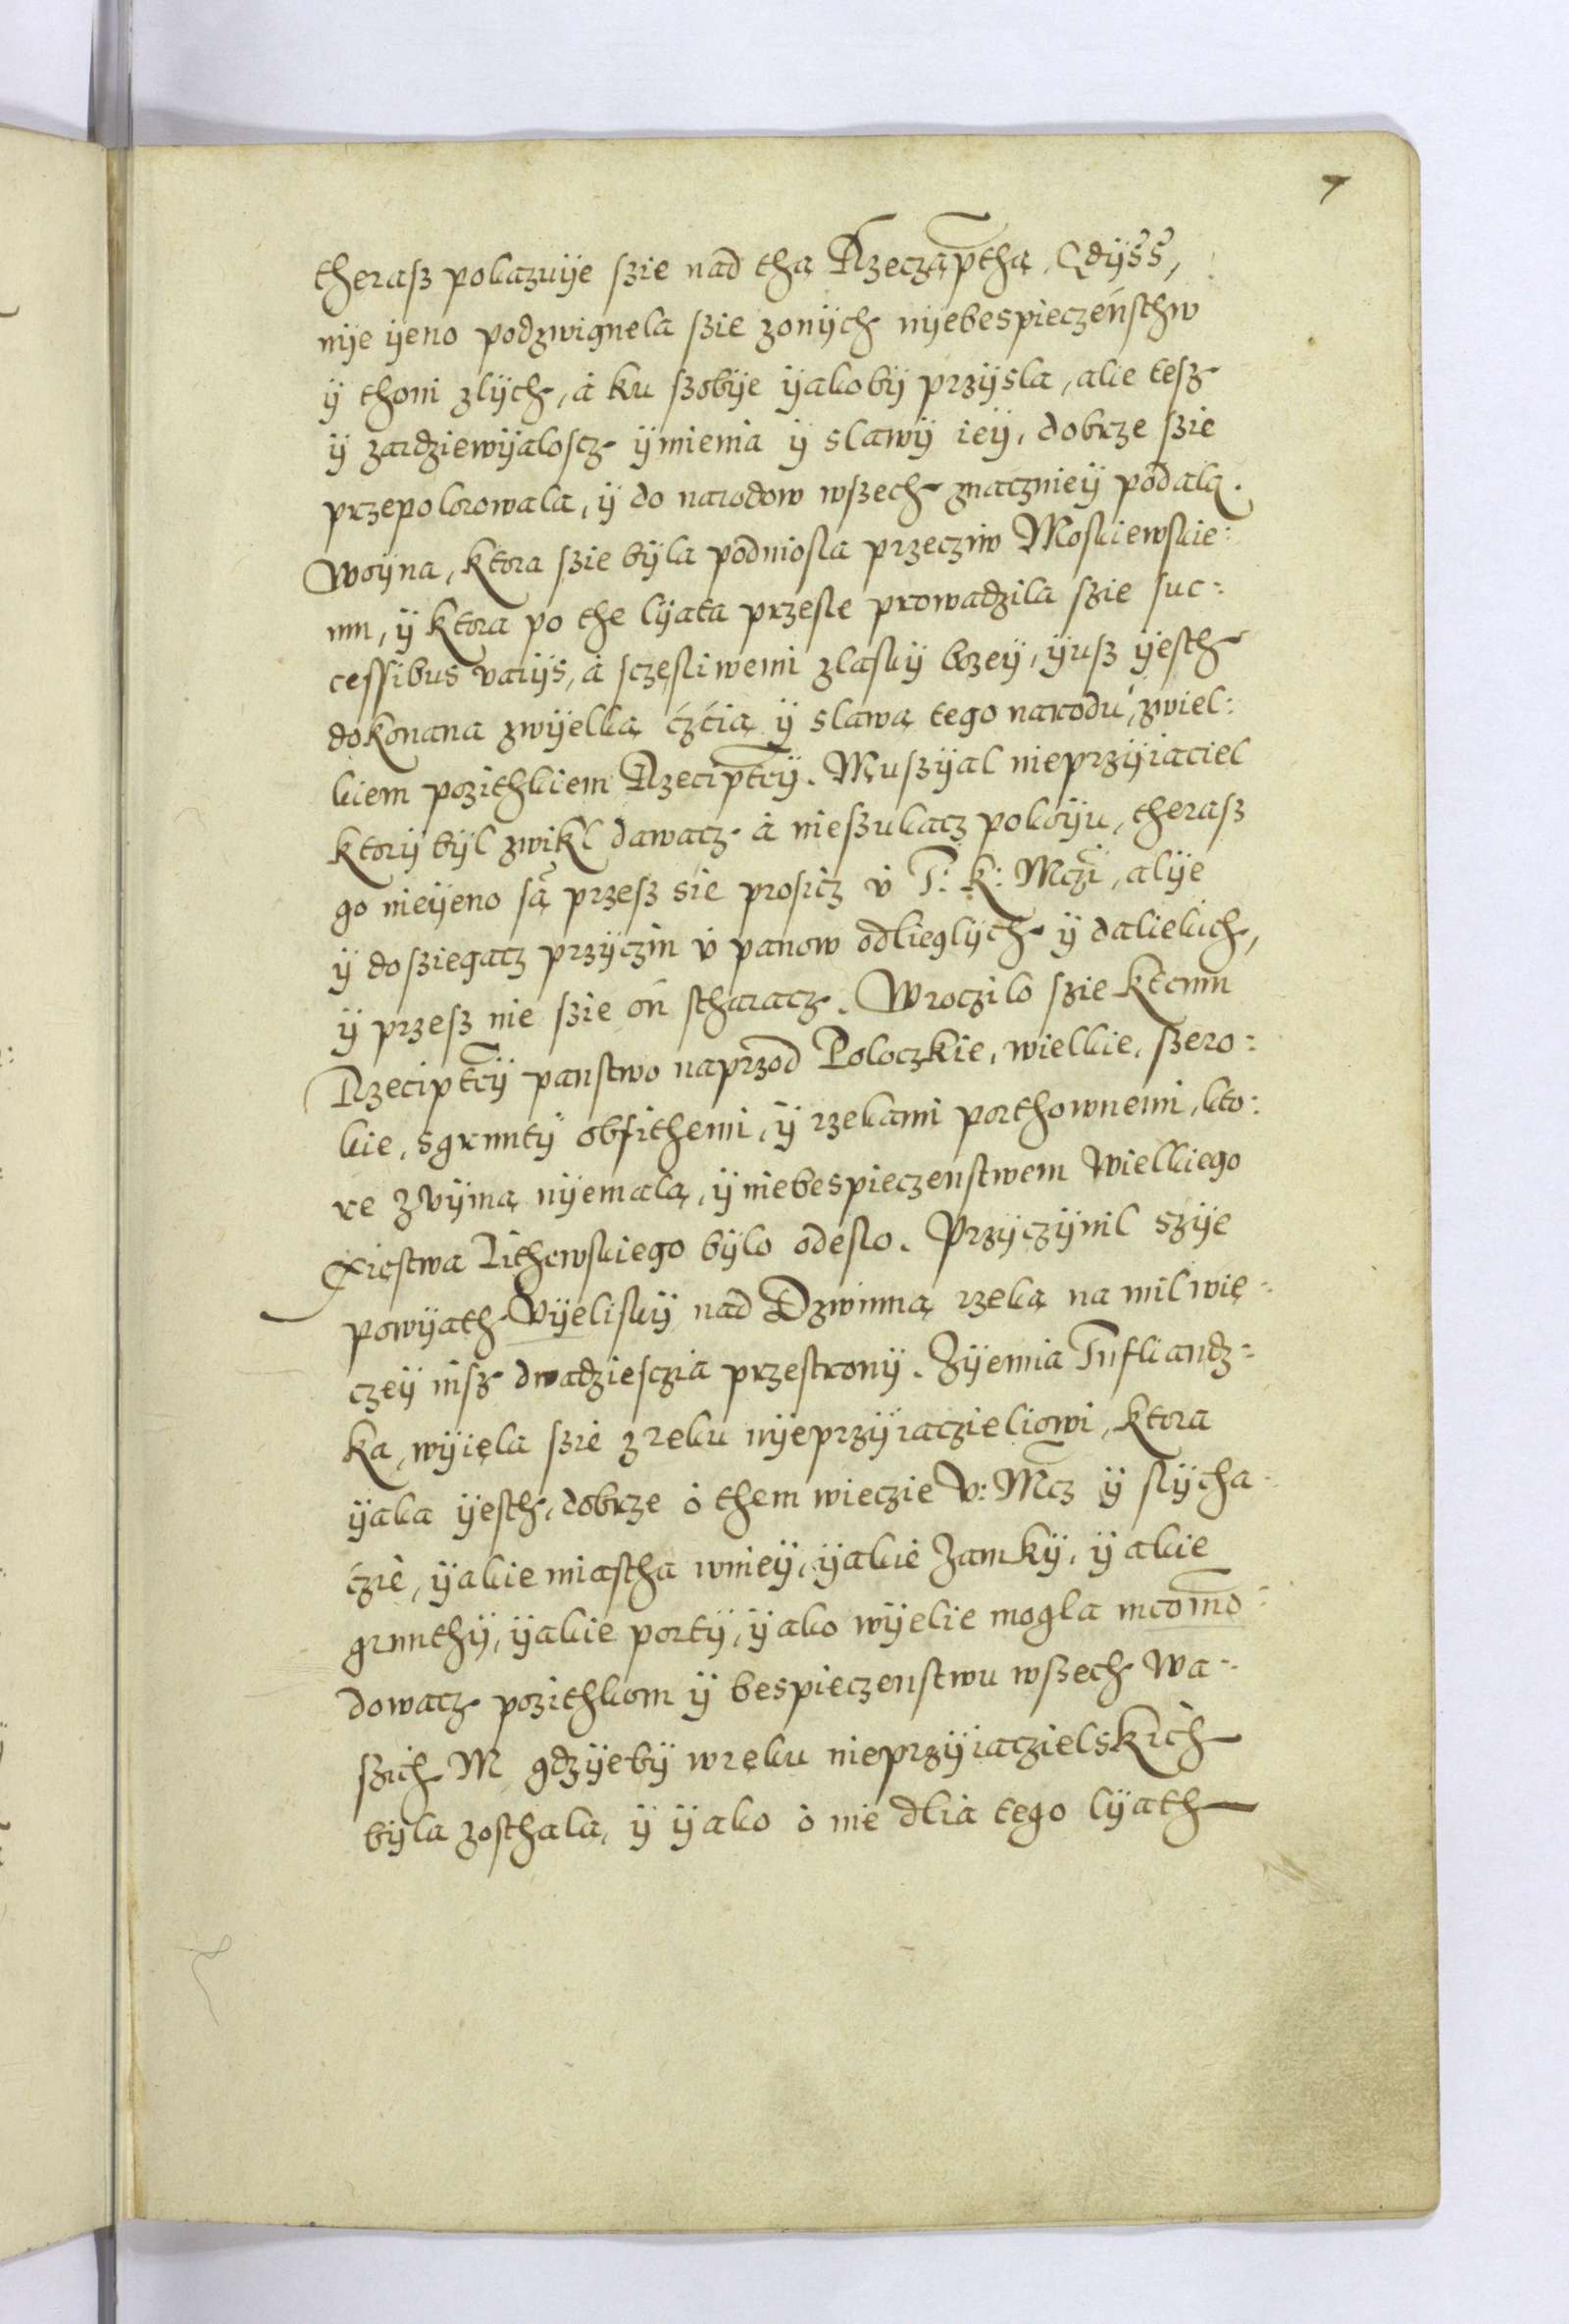 7
theraſz pokazuÿe ſzie nad tha̧ Rzecza̧ptha̧, Gdÿss,
nÿe ÿeno podzwignela ſzie zonÿch nÿebespieczeńſthw
ÿ thoni zlÿch, á ku ſzobÿe ÿakobÿ przÿsla, alie teſz
ÿ zardziewÿaloſcz ÿmienia ÿ slawÿ ieÿ, dobrze ſzie
przepolorowala, ÿ do narodow wſzech znaczniеÿ podala̧.
Woÿna, ktora ſzie bÿla podnioſla przecziw Moskiewskie:
mu, ÿ ktora po the lÿata przeſle prowadzila ſzie ſuc:
ceſſibus varÿs, á ſczęſliwemi zlaſkÿ bozeÿ, ÿuſz ÿeſth
dokonana zwÿelką ćzćią ÿ slawą tego narodu, zwiel:
kiem pozithkiem Rzeciptcÿ. Muſzÿal nieprzÿiaciel
ktorÿ bÿl zwikl dawacz á nieſzukacz pokoÿu, theraſz
go nieÿeno ſą przeſz sie proſicz v́ T: K: Mczi, alÿe
ÿ doſziegacz przÿczin v́ panow odlieglÿch ÿ daliekich,
ÿ przeſz nie ſzie on ſtharacz. Wroczilo ſzie ktemu
Rzeciptcÿ panſtwo naprzod Poloczkie, wielkie, ſzero:
kie, sgruntÿ obfithemi, ÿ rzekami porthownemi, kto:
re zvÿmą nÿemalą, ÿ niebespieczenſtwem Wielkiego
Xięſtwa Lithewſkiego bÿlo odeſlo. Przÿczÿnil szÿe
powÿath Vÿeliſkÿ nad Dzwinną rzeką na mil wię:
czeÿ niſz dwadzieſczia przeſtronÿ. Zÿemia Infliandz:
ka, wÿięla ſzie zreku nÿeprzÿiaczieliowi, ktora
ÿaka ÿeſth, dobrze ó them wieczie V: Mcz ÿ slÿcha:
czie, ÿakie miaſtha wnieÿ, ÿakie Zamkÿ, ÿakie
grunthÿ, ÿakie portÿ, ÿako wÿelie mogla incomo:
dowacz pozithkom ÿ bespieczenſtwu wſzech Wa:
ſzich M gdzÿebÿ wręku nieprzÿiaczielskich
bÿla zoſthala, ÿ ÿako ó nie dlia tego lÿath